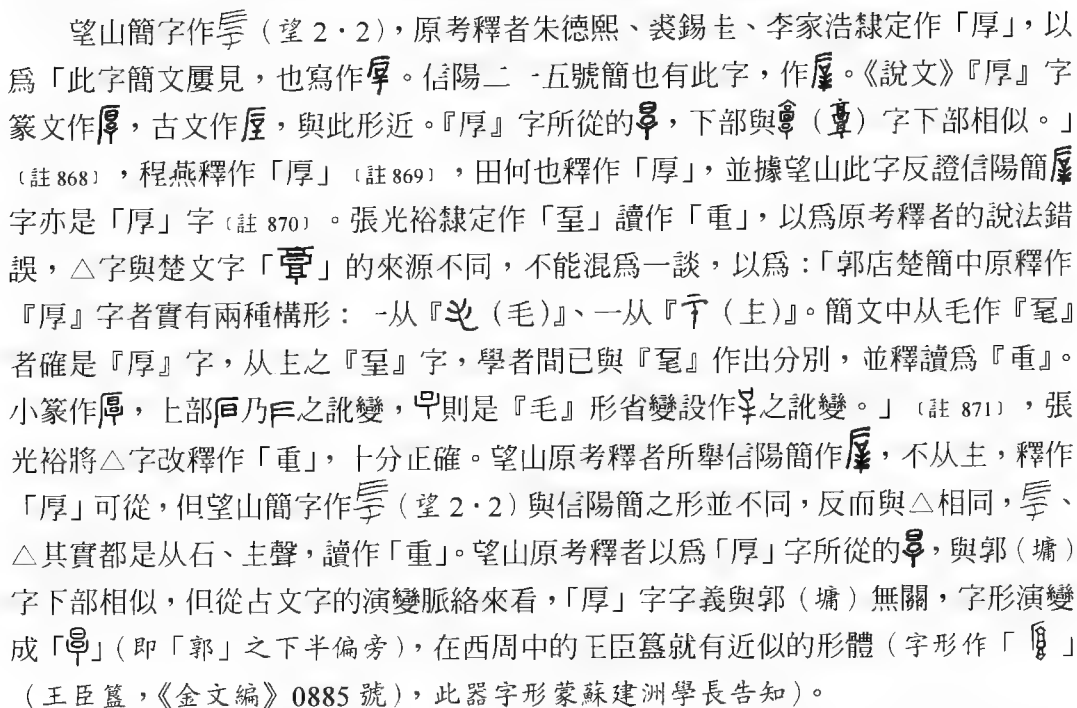 望山簡字作（望2·2），原考釋者朱德熙、裘錫圭、李家浩隸定作「厚」，以
爲「此字簡文屢見，也寫作。信陽二-一五號簡也有此字，作。《說文》『厚』字
篆文作，古文作，與此形近。『厚』字所從的，下部與（）字下部相似。」
〔註868〕，程燕釋作「厚」〔註869〕，田何也釋作「厚」，並據望山此字反證信陽簡
字亦是「厚」字〔註870〕。張光裕隸定作「𦤳」讀作「重」，以爲原考釋者的說法錯
誤，△字與楚文字「」的來源不同，不能混爲一談，以爲：「郭店楚簡中原釋作
『厚』字者實有兩種構形：一从『（毛）』、一从『（主）』。簡文中从毛作『』
者確是『厚』字，从主之『』字，學者間已與『』作出分別，並釋讀爲『重』。
小篆作，上部乃之訛變，則是『毛』形省變設作之訛變。」〔註871〕，張
光裕將△字改釋作「重」，十分正確。望山原考釋者所舉信陽簡作，不从主，釋作
「厚」可從，但望山簡字作（望2·2）與信陽簡之形並不同，反而與△相同，、
△其實都是从石、主聲，讀作「重」。望山原考釋者以爲「厚」字所從的，與郭（墉）
字下部相似，但從古文字的演變脈絡來看，「厚」字字義與郭（墉）無關，字形演變
成「」（即「郭」之下半偏旁），在西周中的王臣簋就有近似的形體（字形作「」
（王臣簋，《金文編》0885號），此器字形蒙蘇建洲學長告知）。